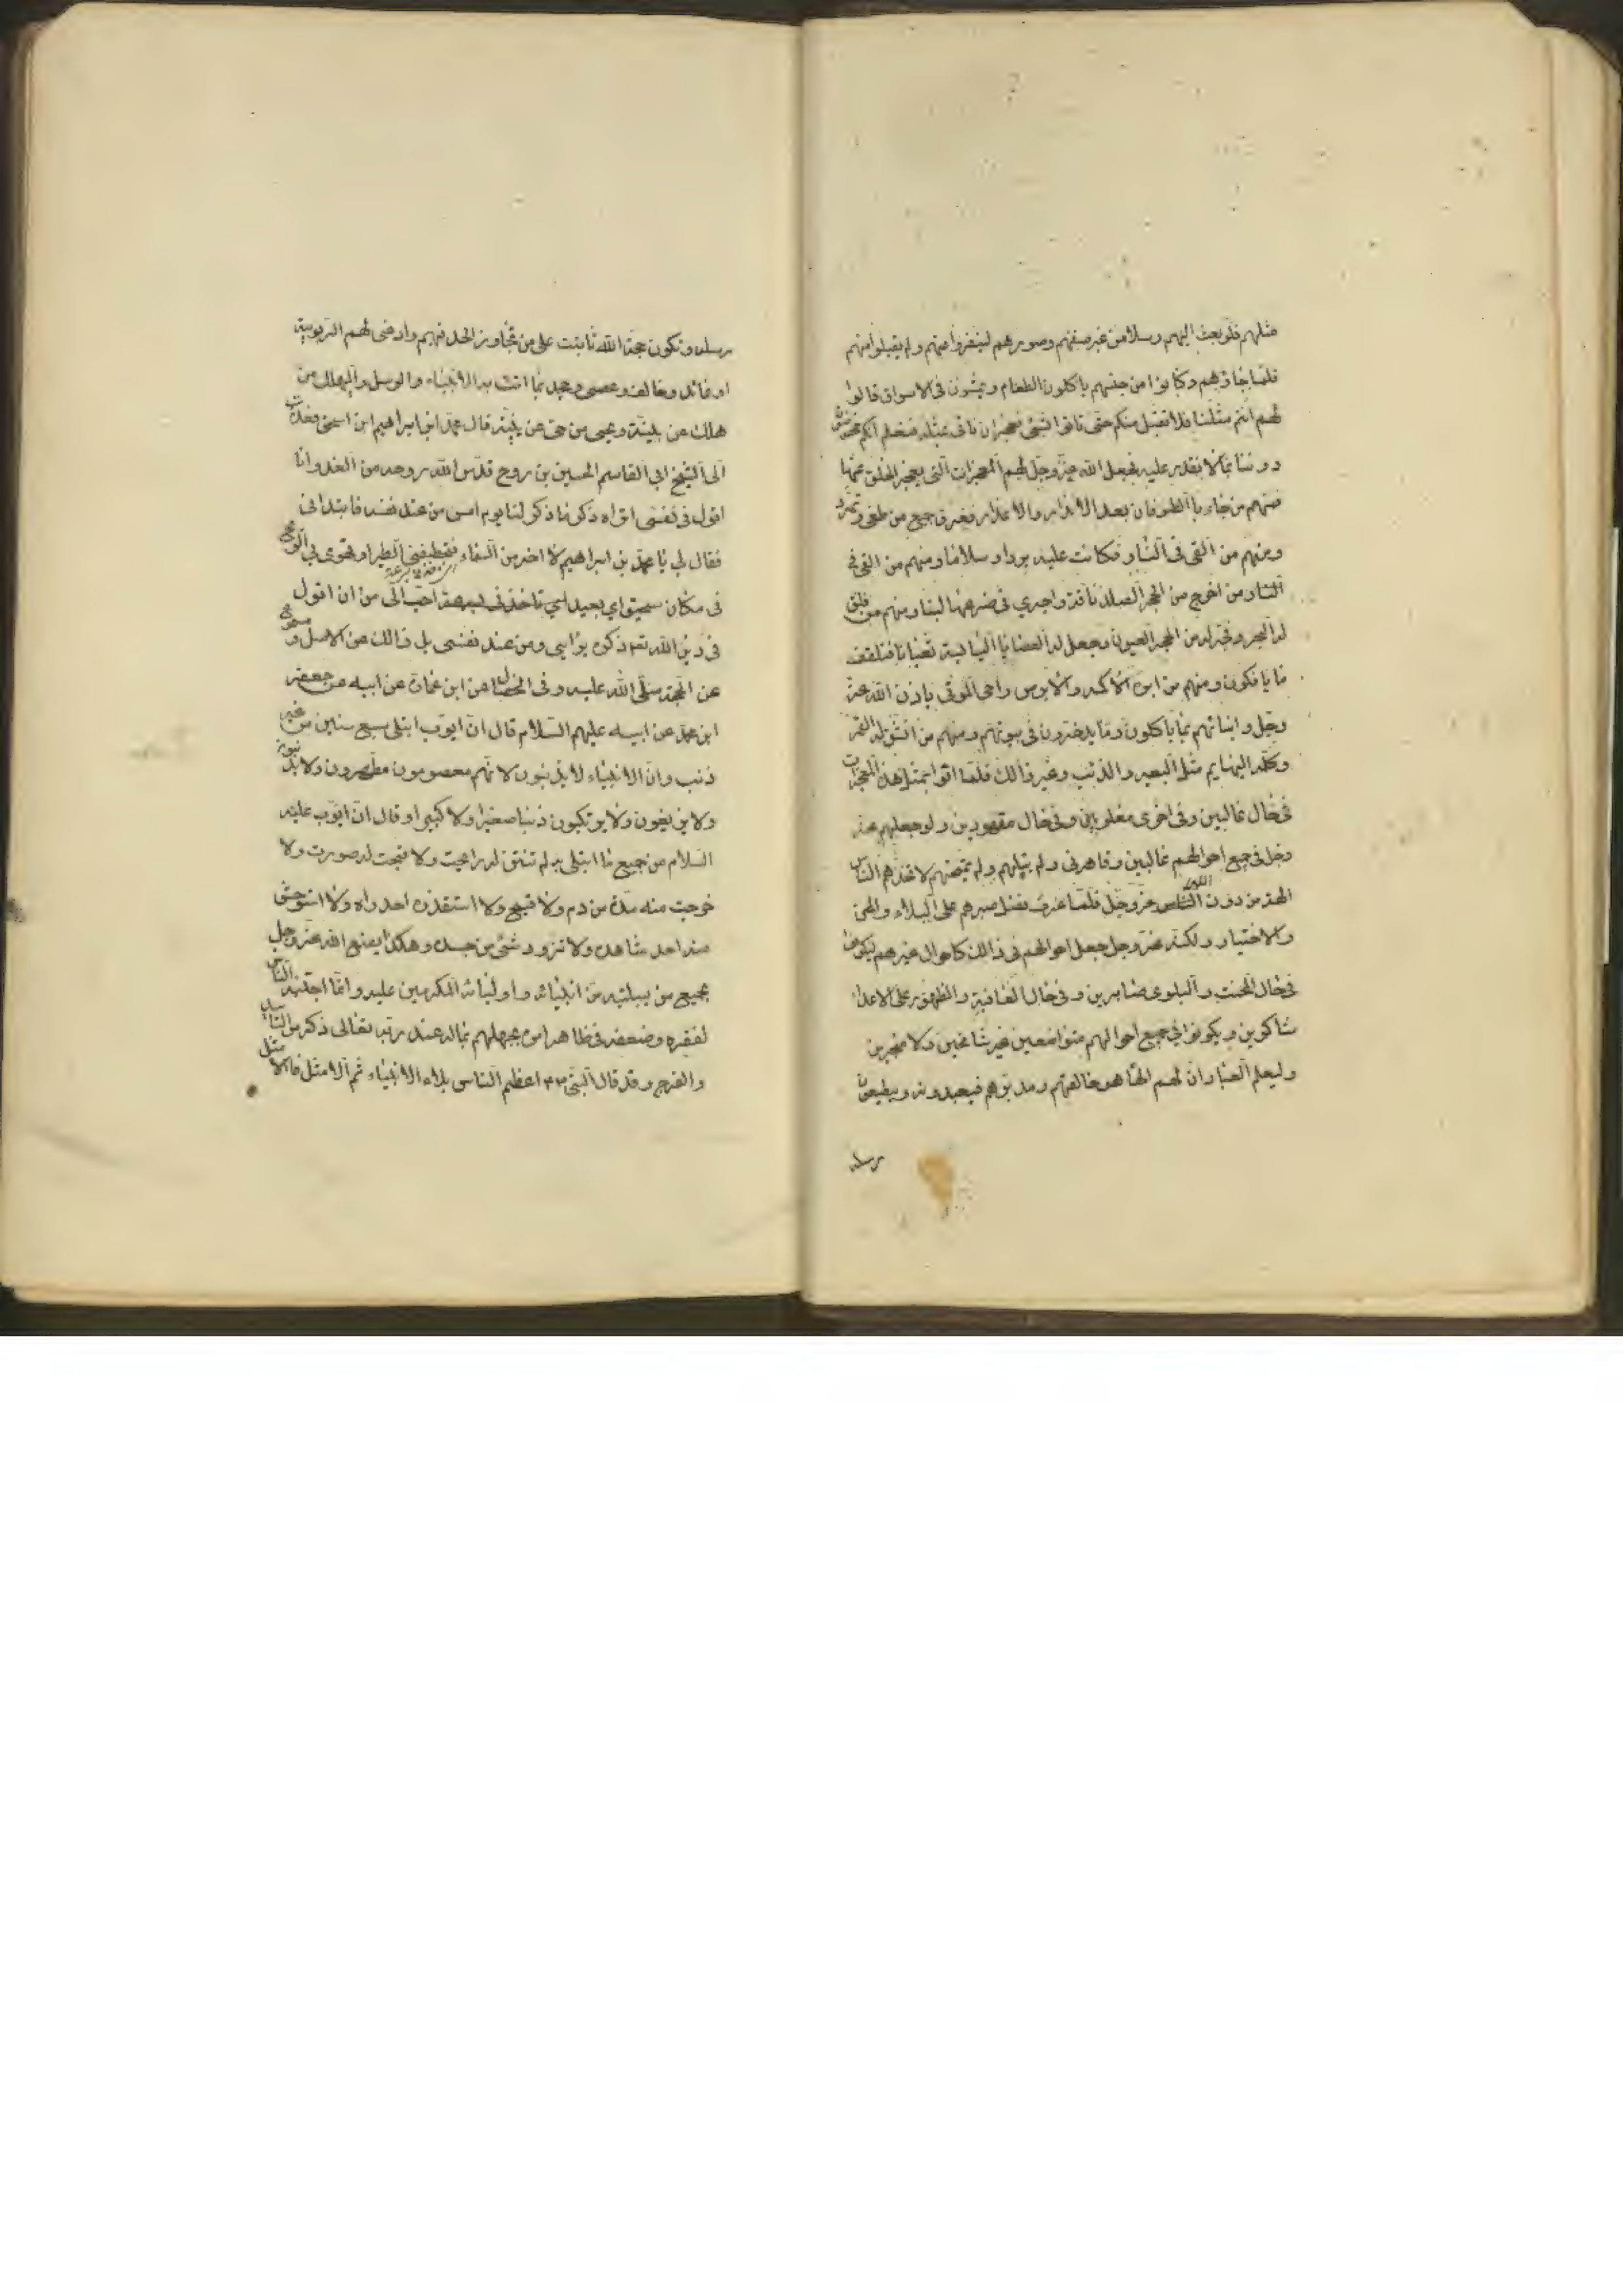 مثلهم فلو بعث اليهم رسلا من غير صنفهم وصورهم لينفروا عنهم ولم يقبلوا منهم
فلما جاؤهم وكانوا من جنسهم ياكلون الطعام ويمشون في الاسواق قالوا
لهم انتم مثلنا فلا نقبل منكم حتى تاتوا بشئ نعجز ان ناتي بمثله فنعلم انكم مخصوصون
دوننا بما لا نقدر عليه فجعل الله عز وجل لهم المعجزات التي يعجز الخلق عنها
فمنهم من جاء بالطوفان بعد الانذار والاعذار فغرق جميع من طغى وتمرد
ومنهم من القي في النار فكانت عليه بردا وسلاما ومنهم من القي في
النار ومن اخرج من الحجر الصلد ناقة واجري في ضرعها لبنا ومنهم من فلق
له البحر وفجر له من الحجر العيون وجعل له العصا اليابسة ثعبانا فتلقف
ما يافكون ومنهم من ابرء الاكمه والابرص واحى الموتى باذن الله عز
وجل وانباهم بما ياكلون وما يدخرون في بيوتهم ومنهم من انشق له القمر
وكلمه البهايم مثل البعير والذئب وغير ذالك فلما اتوا بمثل هذه المعجزات
في حال غالبين وفي اخرى مغلوبين وفي حال مقهورين ولو جعلهم عز
وجل في جميع احوالهم غالبين وقاهرين ولم يبتلهم ولم يمتحنهم لاتخذهم الناس
الهة من دون الله عز وجل فلما عرف فضل صبرهم على البلاء والمحن
والاختبار ولكنه عز وجل جعل احوالهم في ذالك كاحوال غيرهم ليكونوا
في حال المحنت والبلوى صابرين وفي حال العافية والظهور على الاعداء
شاكرين ويكونوا في جميع احوالهم متواضعين غير شامخين ولا متجبرين
وليعلم العباد ان لهم الها هو خالقهم ومدبرهم فيعبدونه ويطيعوا
رسله
رسله وتكون حجة الله ثابتت على من تجاوز الحد فيهم وادعى لهم الربوبية
او عاند وخالف وعصى وجحد بما اتت به الانبياء والرسل وليهلك من
هلك عن بينة ويحيى من حي عن بينة قال محمد ابن ابراهيم ابن اسحق فعدت
الى الشيخ ابي القاسم الحسين بن روح قدس الله روحه من الغد وانا
اقول في نفسي اتراه ذكر ما ذكر لنا يوم امس من عند نفسه فابتداني
فقال لي يا محمد بن ابراهيم لا اخر من السماء فتخطفني الطير او تهوى بي الريح
في مكان سحيق اي بعيد احب الى من ان اقول
في دين الله تعه ذكره برايي ومن عند نفسي بل ذالك عن الاصل ومسموع
عن الحجة صلى الله عليه وفي الخصال عن ابن عمارة عن ابيه عن جعفر
ابن محمد عن ابيه عليهم السلام قال ان ايوب ابتلى سبع سنين من غير
ذنب وان الانبياء لا يذنبون لانهم معصومون مطهرون ولا يذنبون
ولا يزيغون ولا يرتكبون ذنبا صغيرا ولا كبيرا وقال ان ايوب عليه
السلام من جميع ما ابتلى به لم تنتن له رايحت ولا قبحت له صورت ولا
خرجت منه مدة من دم ولا قيح ولا استقذره احد راه ولا استوحش
منه احد شاهده ولا تدود شئ من جسده وهكذا يصنع الله عز وجل
بجميع من يبتليه من انبيائه واوليائه المكرمين عليه وانما اجتنبه الناس
لفقره وضعفه في ظاهر امره بجهلهم بما له عند ربه تعالى ذكره من التاييد
والفرج وقد قال النبي اعظم الناس بلاء الانبياء ثم الامثل فالامثل